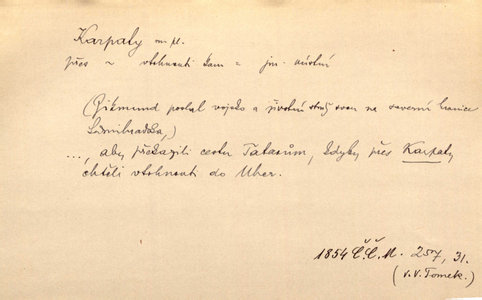 Karpaty m. pl.
přes ~ vtrhnouti kam = jm. místní
(Zikmund poslal vojsko a životní stráž svou na severní hranice
Sedmihradska,)
..., aby překazili cestu Tatarům, kdyby přes Karpaty
chtěli vtrhnouti do Uher.
1854 Č.Č.M. 257, 31.
(V.V. Tomek.)